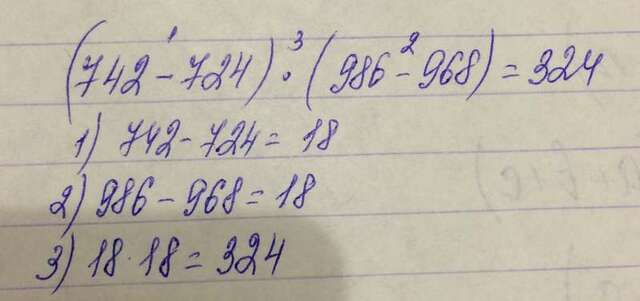 (742 - 724) · (986 - 968) = 324
1) 742 - 724 = 18
2) 986 - 968 = 18
3) 18 · 18 = 324